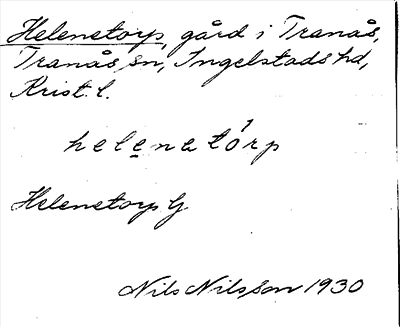 Helenetorp, gård i Tranås,
Tranås sn, Ingelstads hd,
Krist. l.
helenatórp
Helenetorp G
Nils Nilsson 1930